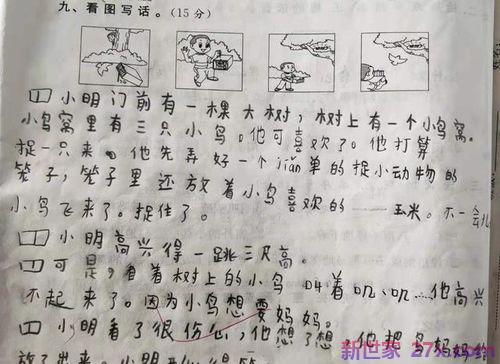 九、看图写话。(15分)
小明门前有一棵大树，树上有一个小鸟窝。
小鸟窝里有三只小鸟。他可喜欢了。他打算
捉一只来。他先弄好一个jiǎn单的捉小动物的
笼子，笼子里还放着小鸟喜欢的——玉米。不一会儿
小鸟飞来了。捉住了。
小明高兴得一跳三尺高。
可是，看着树上的小鸟叫着叽、叽……他高兴
不起来了。因为小鸟想要妈妈。
小明看了很伤心，他想了想，他把鸟妈妈
放了出来。小明开心得笑
新世家 27x.com